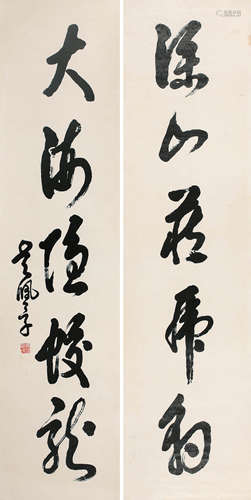 深山藏虎豹
大海隐蛟龙